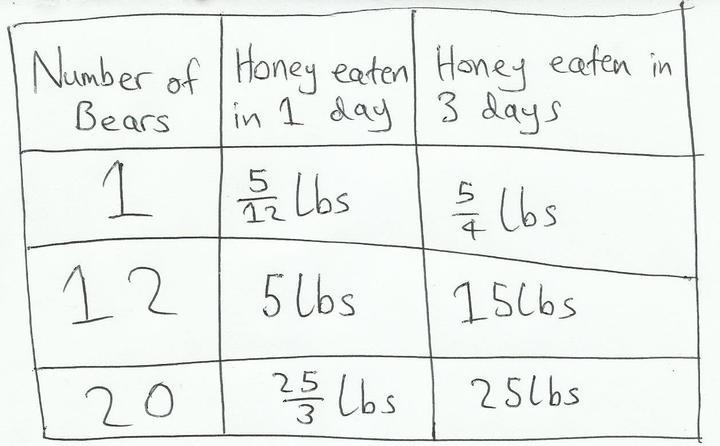 Number of Bears
Honey eaten in 1 day
Honey eaten in 3 days
1
5/12 lbs
5/4 lbs
12
5 lbs
15 lbs
20
25/3 lbs
25 lbs